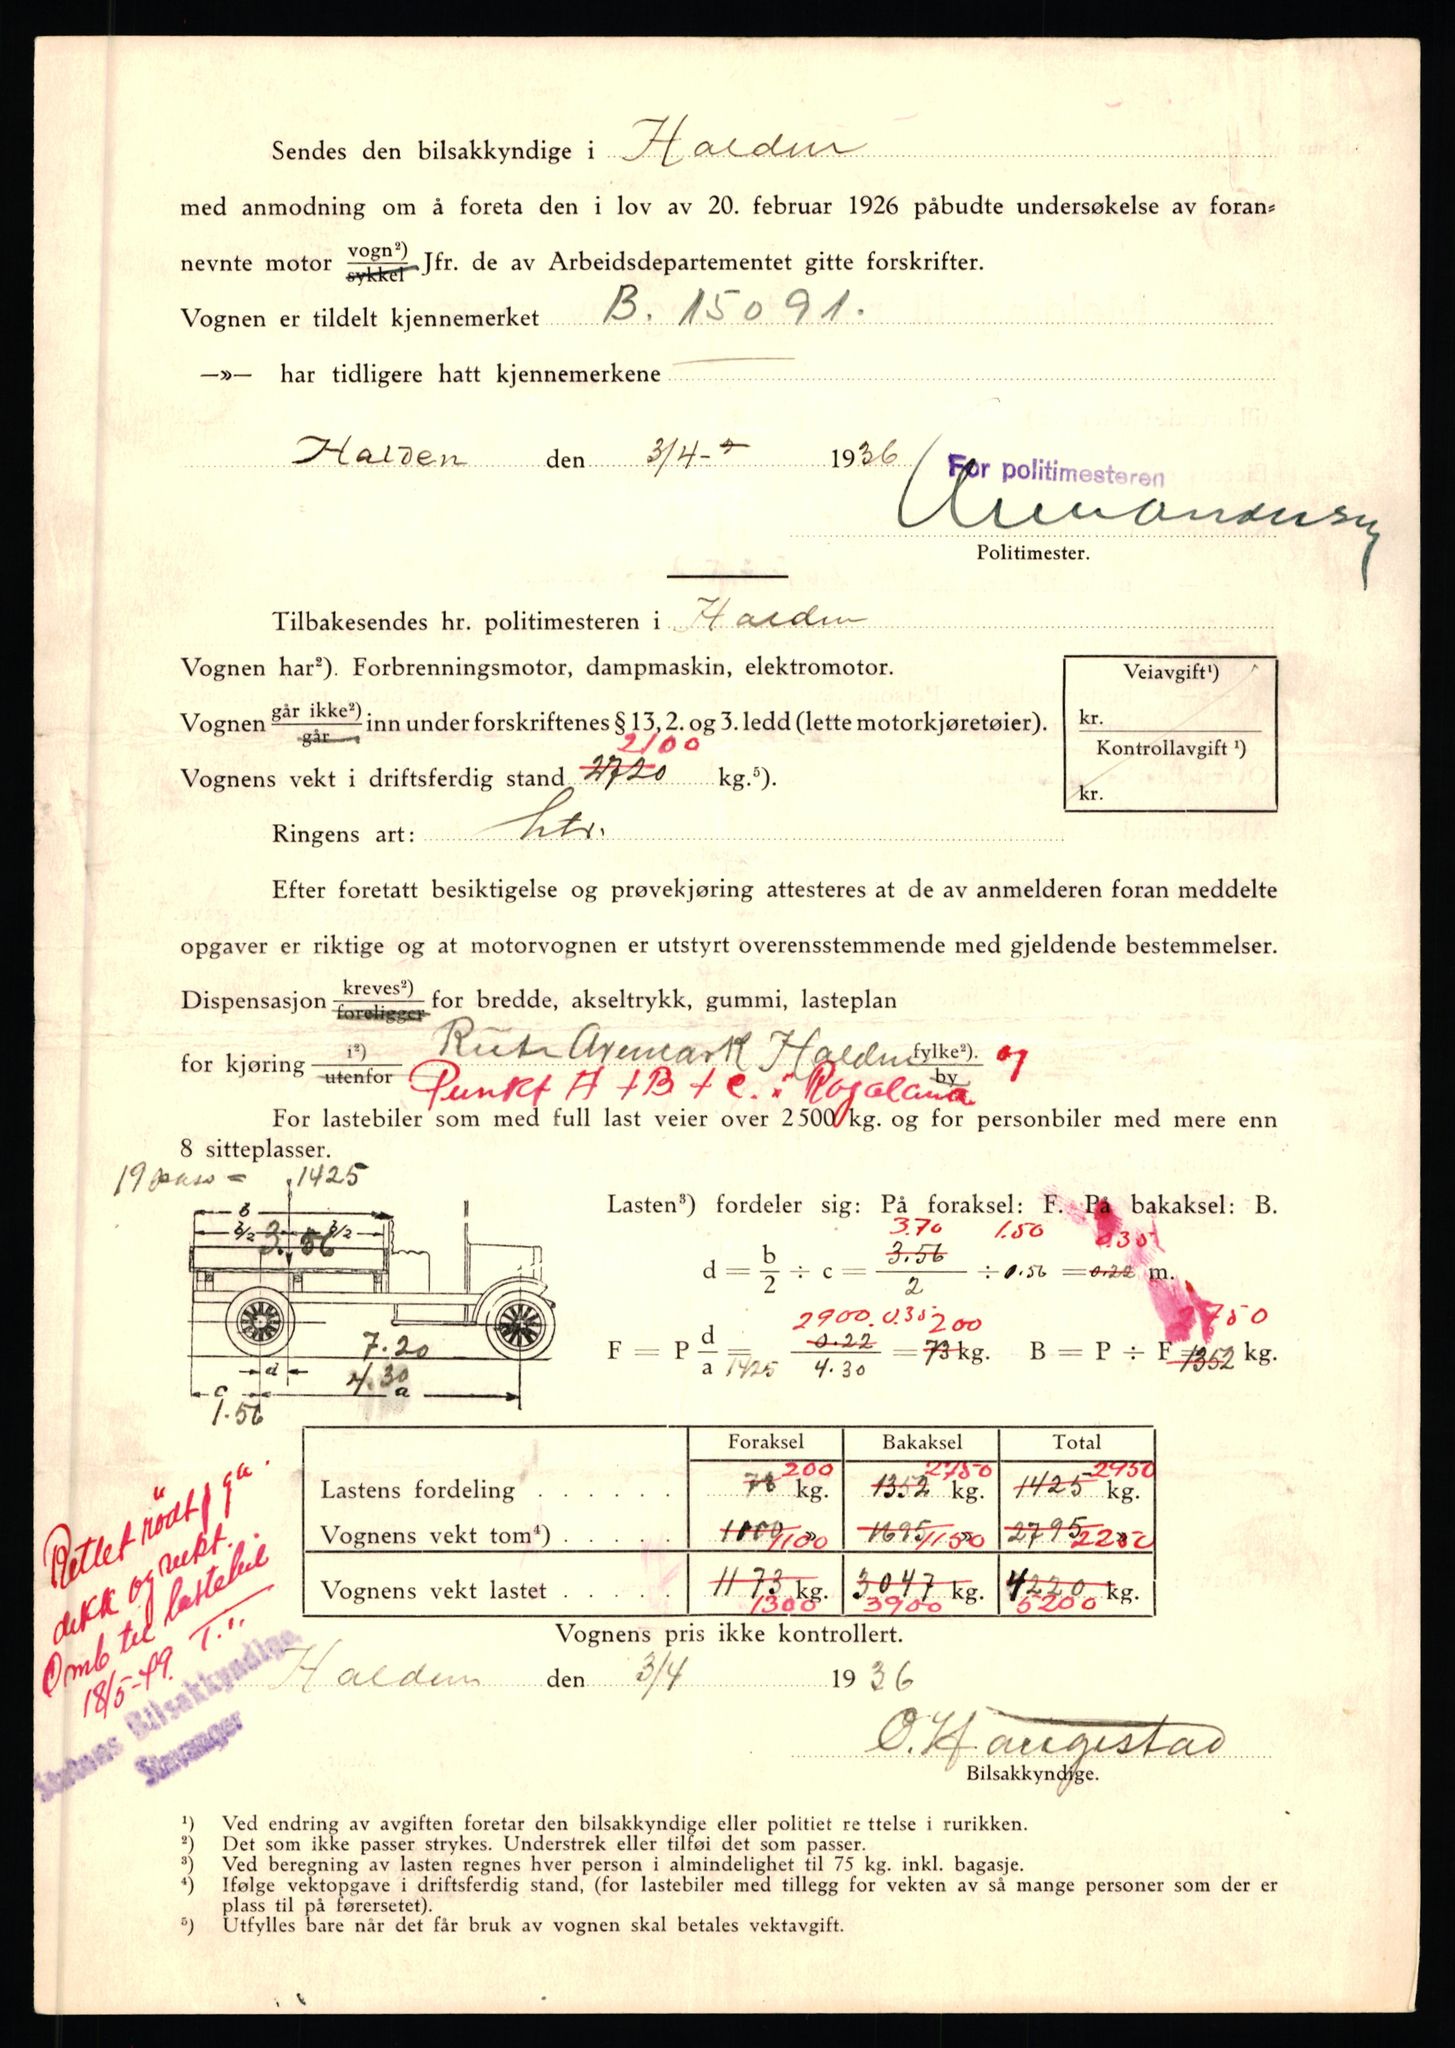 Sendes den bilsakkyndige i Halden
med anmodning om å foreta den i lov av 20. februar 1926 påbudte undersøkelse av foran=
nevnte motor vogn²) / sykkel Jfr. de av Arbeidsdepartementet gitte forskrifter.
Vognen er tildelt kjennemerket B. 15091.
—»— har tidligere hatt kjennemerkene
Halden den 3/4- 1936
For politimesteren
Politimester.
Tilbakesendes hr. politimesteren i Halden
Vognen har²). Forbrenningsmotor, dampmaskin, elektromotor.
Veiavgift¹)
kr.
Kontrollavgift ¹)
kr.
Vognen går ikke²) / går inn under forskriftenes § 13, 2. og 3. ledd (lette motorkjøretøier).
2100
Vognens vekt i driftsferdig stand 2720 kg.⁵).
Ringens art: htr.
Efter foretatt besiktigelse og prøvekjøring attesteres at de av anmelderen foran meddelte
opgaver er riktige og at motorvognen er utstyrt overensstemmende med gjeldende bestemmelser.
Dispensasjon kreves²) / foreligger for bredde, akseltrykk, gummi, lasteplan
for kjøring i²) / utenfor Rute Aremark Halden fylke²). / by og
Punkt A + B + C. i Rogaland
For lastebiler som med full last veier over 2500 kg. og for personbiler med mere enn
8 sitteplasser.
19 pass = 1425
b
b/2 b/2
3.56
7.20
d
4.30
c a
1.56
Lasten³) fordeler sig: På foraksel: F. På bakaksel: B.
3.70 1.50 0.35
d = b/2 ÷ c = 3.56/2 ÷ 0.56 = 0.22 m.
2900. 0.35 200 2750
F = P d/a = 1425 0.22/4.30 = 73 kg. B = P ÷ F = 1352 kg.
Foraksel Bakaksel Total
200 2750 2950
Lastens fordeling . . . . . . 78 kg. 1352 kg. 1425 kg.
Vognens vekt tom⁴) . . . . . 1000 » 1100 1695 » 1150 2795 » 2250
Vognens vekt lastet . . . . . 1173 kg. 3047 kg. 4220 kg.
1300 3900 5200
Rettet rødt p g a.
dekk og vekt.
Omb til lastebil
18/5-49. T...
Statens Bilsakkyndige
Stavanger
Vognens pris ikke kontrollert.
Halden den 3/4 1936
O. Haugestad
Bilsakkyndige.
¹) Ved endring av avgiften foretar den bilsakkyndige eller politiet re ttelse i rurikken.
²) Det som ikke passer strykes. Understrek eller tilføi det som passer.
³) Ved beregning av lasten regnes hver person i almindelighet til 75 kg. inkl. bagasje.
⁴) Ifølge vektopgave i driftsferdig stand, (for lastebiler med tillegg for vekten av så mange personer som der er
plass til på førersetet).
⁵) Utfylles bare når det får bruk av vognen skal betales vektavgift.